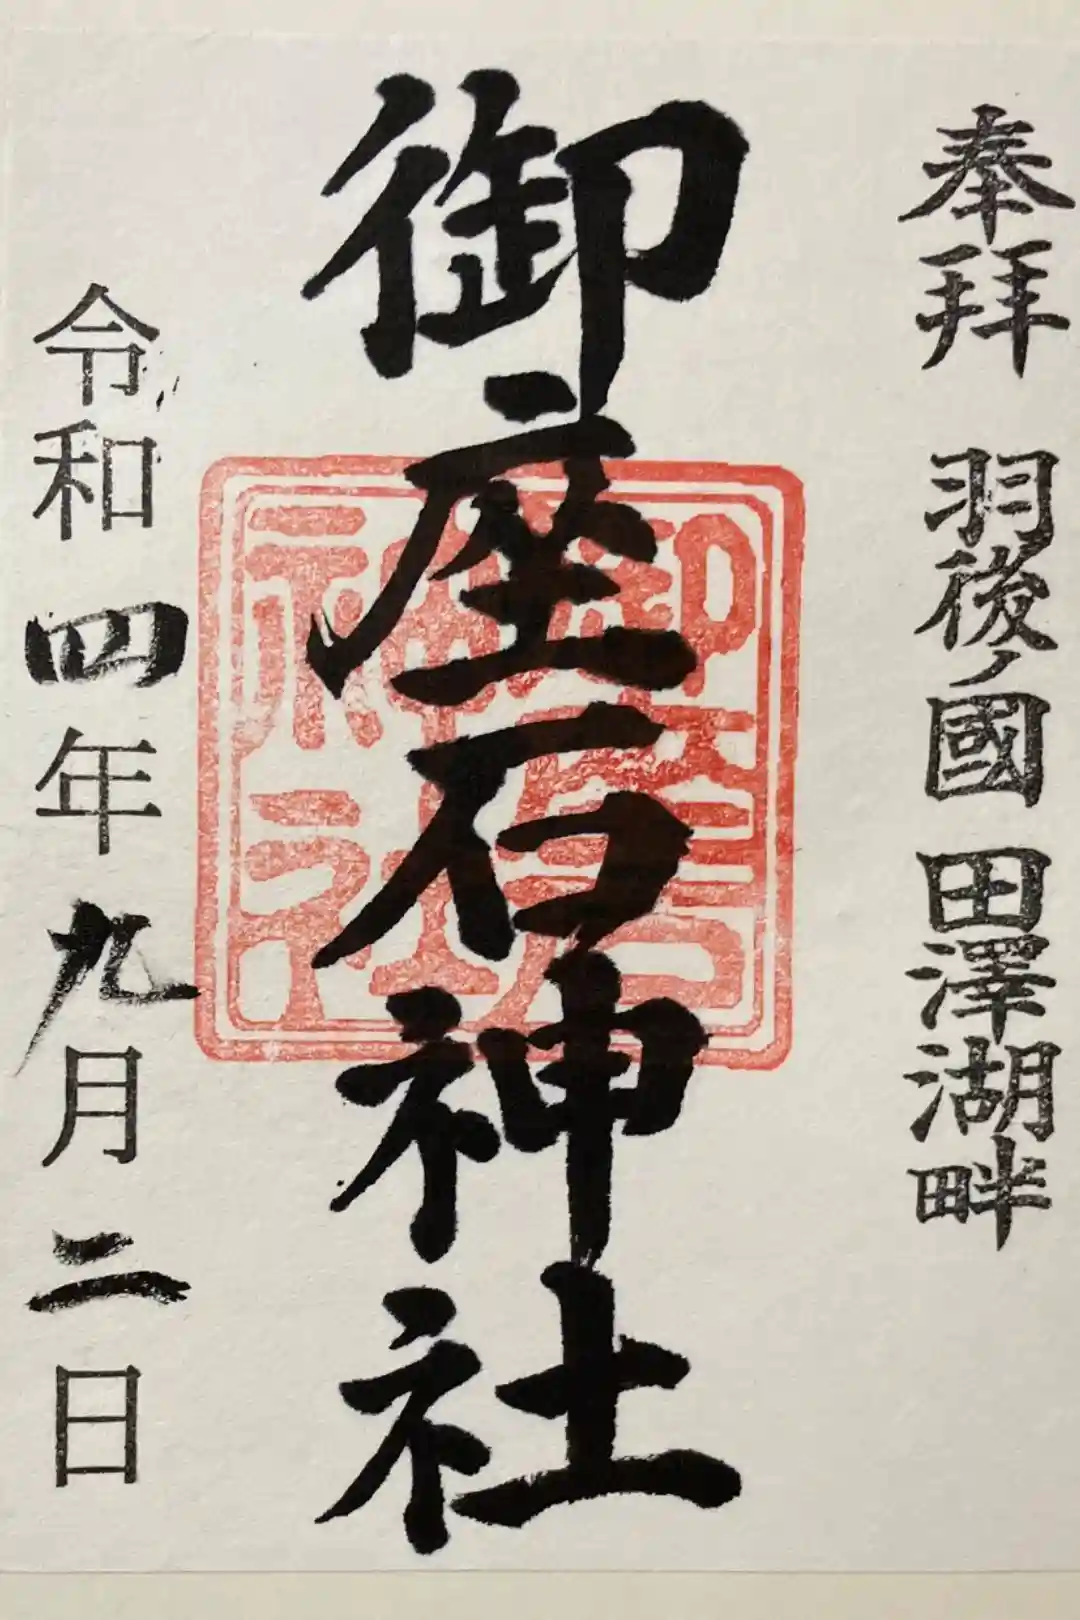 奉拝 羽後ノ國 田澤湖畔
御座石神社
御座石神社
令和四年九月二日